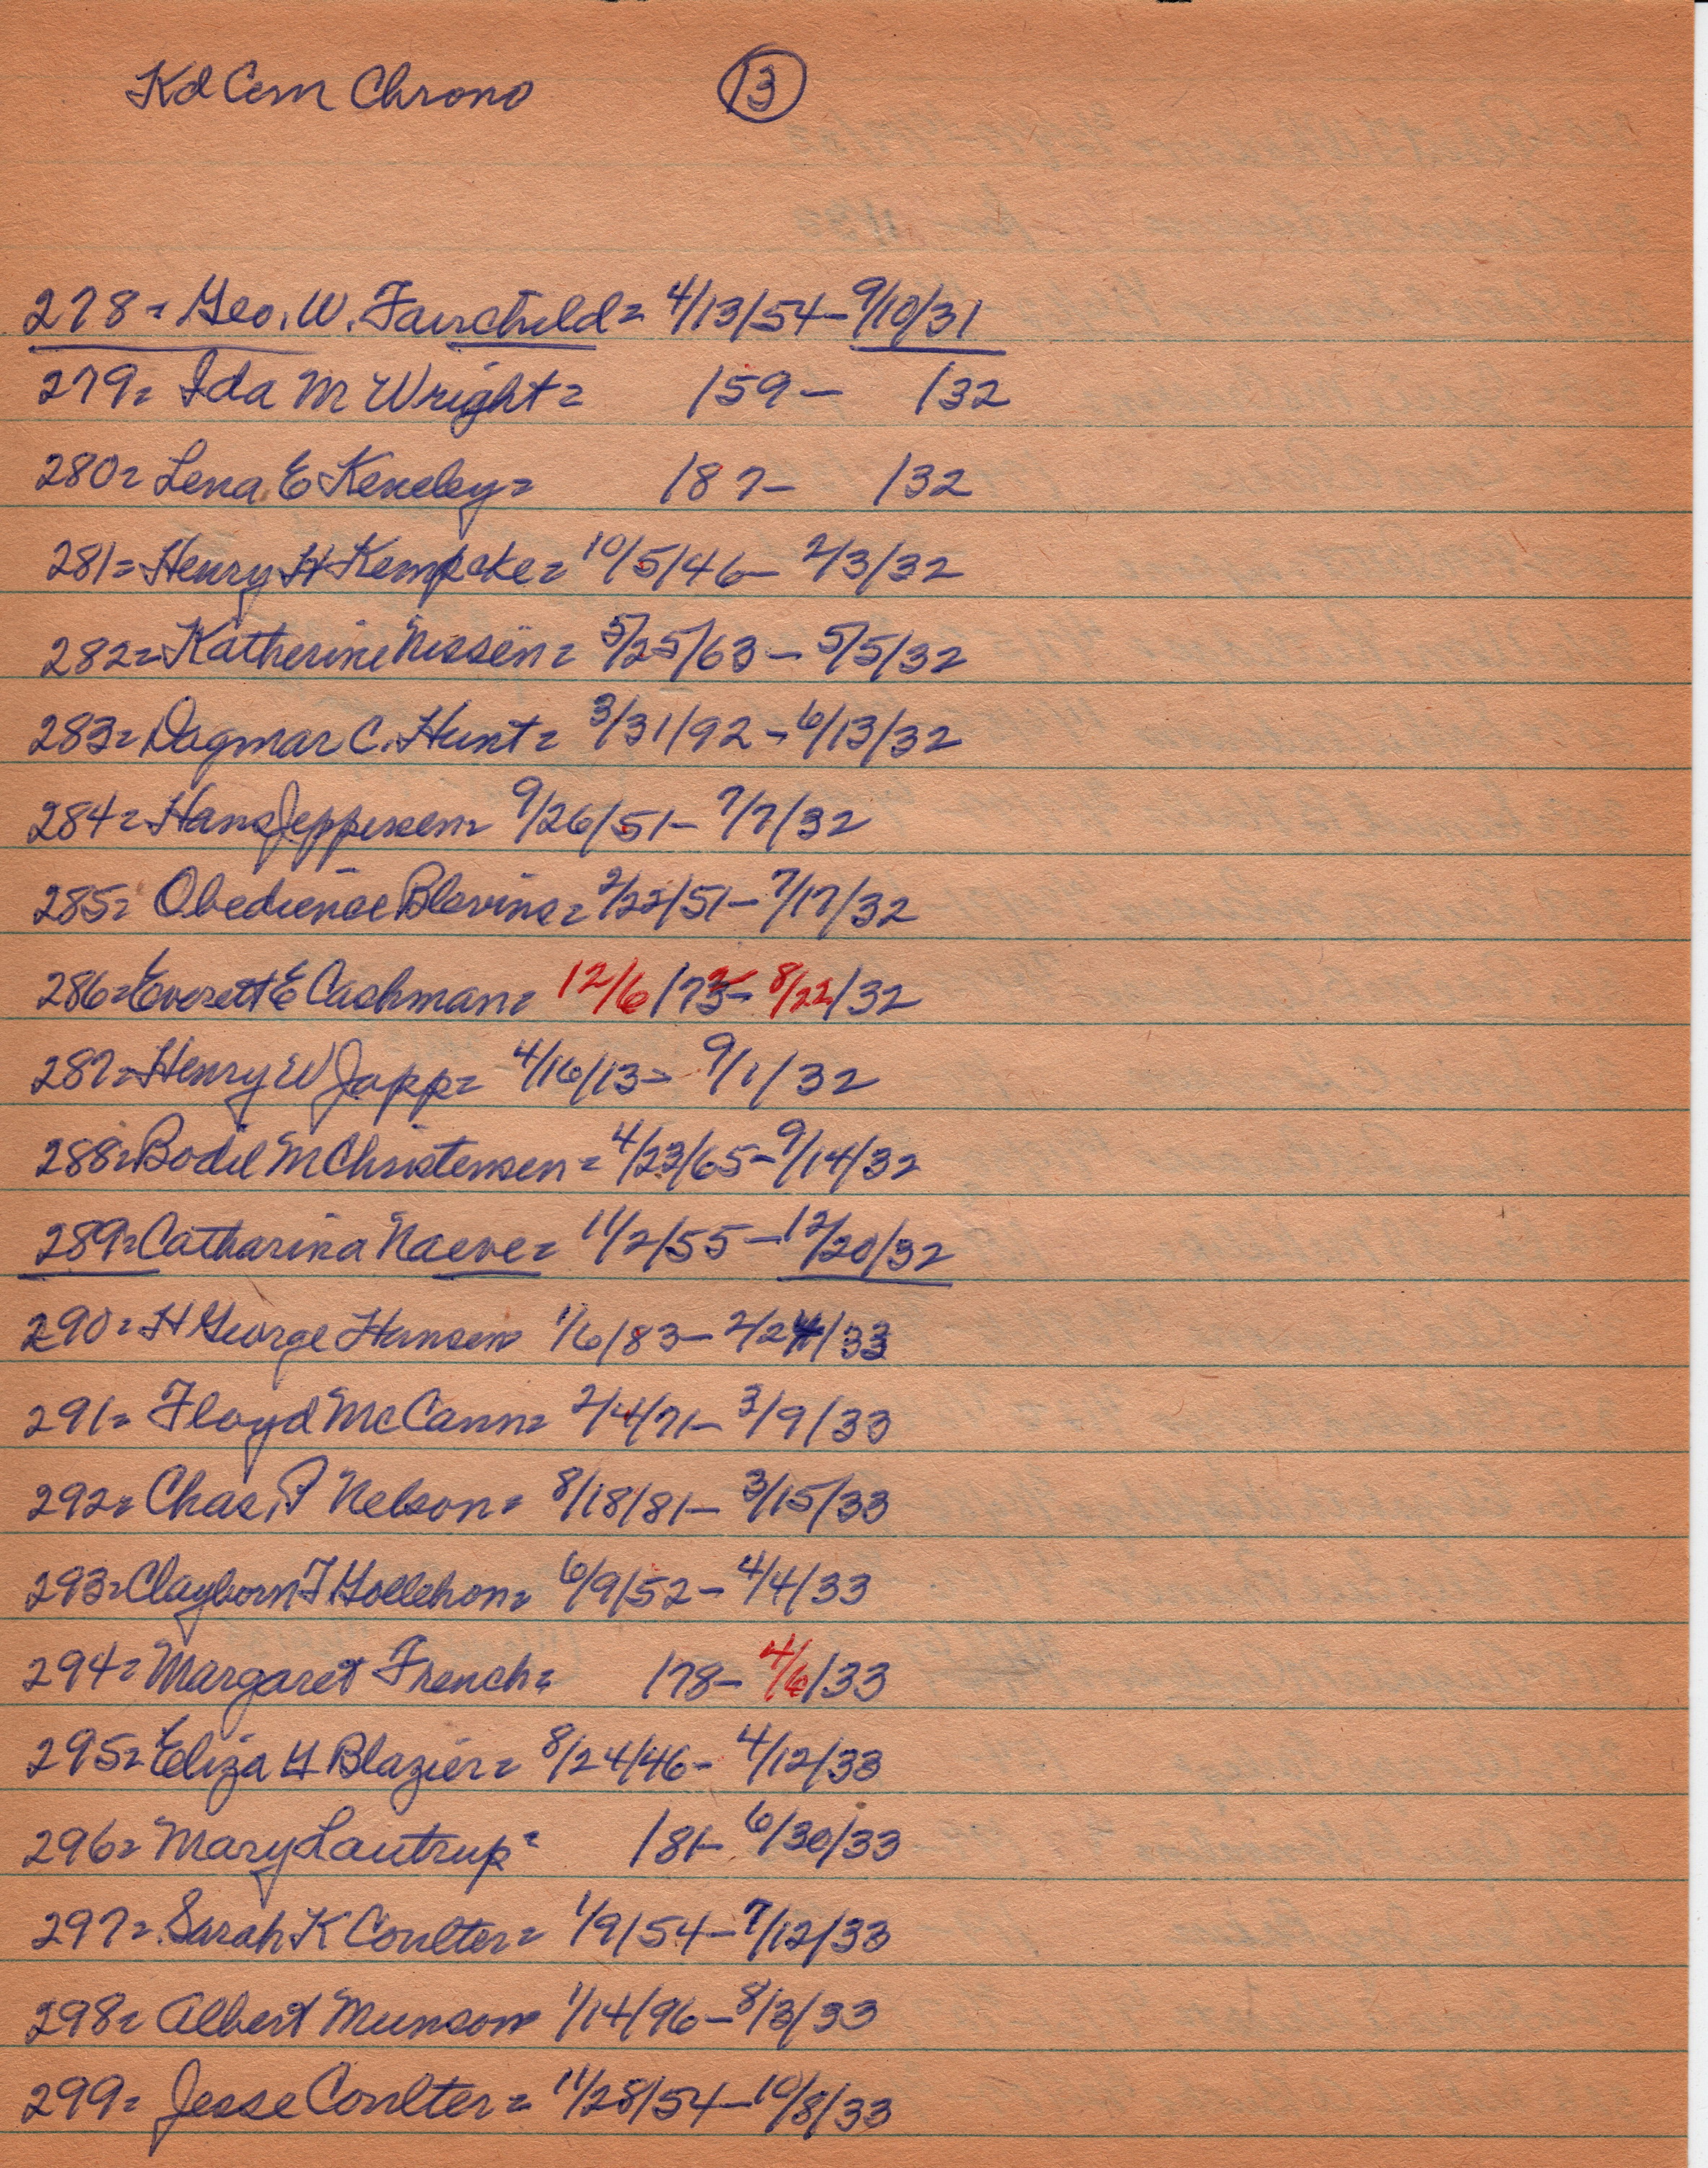 Kd Cem Chrono 13
278= Geo. W. Fairchild= 4/13/54-9/10/31
279= Ida M Wright= /59- /32
280= Lena E Keneley= /87- /32
281= Henry H Kempcke= 10/5/46- 2/3/32
282= Katherine Nissen= 5/25/63- 5/5/32
283= Dagmar C. Hunt= 3/31/92-6/13/32
284= Hans Jeppesen= 9/26/51- 7/7/32
285= Obedience Blevins= 2/22/51-7/17/32
286= Everett E Cashman= 12/6/73- 8/22/32
287= Henry W Japp= 4/16/13- 9/1/32
288= Bodil M Christensen= 4/23/65-9/14/32
289= Catharina Naeve= 11/2/55-12/20/32
290= H George Hansen 1/6/83- 2/24/33
291= Floyd McCann= 2/4/71- 3/9/33
292= Chas. P Nelson= 8/18/81- 3/15/33
293= Clayborn F Gollehon= 6/9/52- 4/4/33
294= Margaret French= /78- 4/6/33
295= Eliza G Blazier= 8/24/46- 4/12/33
296= Mary Lautrup= /81- 6/30/33
297= Sarah K Coulter= 1/9/54-7/12/33
298= Albert Munson 1/14/96-8/3/33
299= Jesse Coulter= 11/28/54-10/8/33